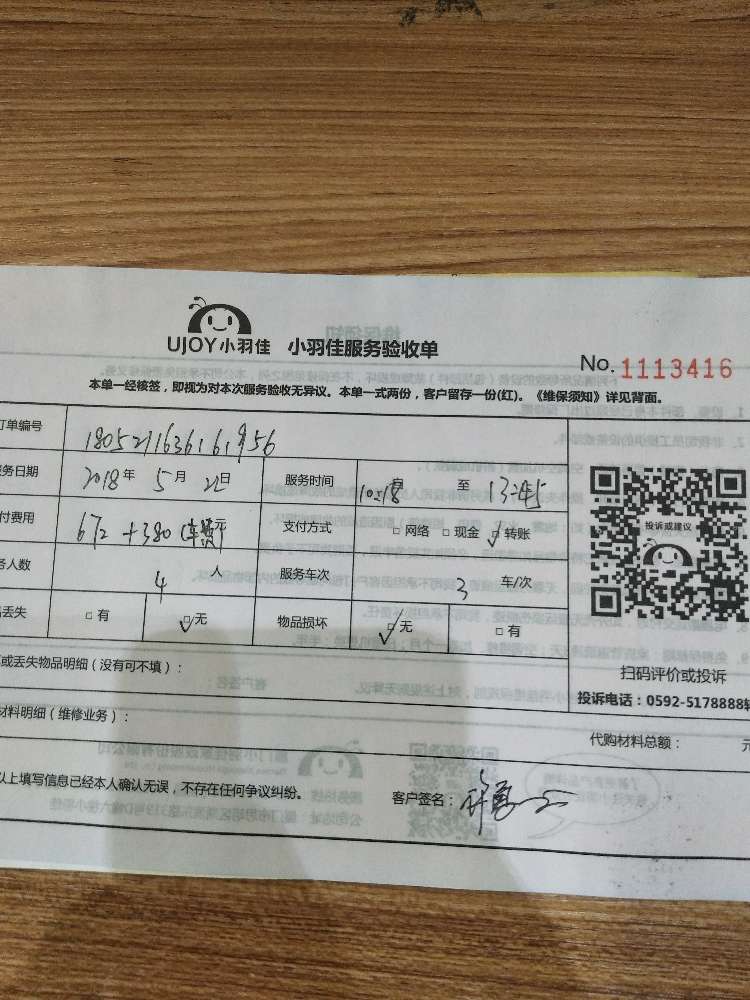 UJOY小羽佳 小羽佳服务验收单
No. 1113416
本单一经核签，即视为对本次服务验收无异议。本单一式两份，客户留存一份(红)。《维保须知》详见背面。
订单编号 180521163616956
务日期 2018年 5月 22日 服务时间 10:18 自 至 13:45
付费用 672+380 支付方式 □网络 □现金 □转账
务人数 4 人 服务车次 3 车/次
丢失 □有 □无 物品损坏 □无 □有
投诉或建议
扫码评价或投诉
投诉电话：0592-5178888转
或丢失物品明细（没有可不填）：
材料明细（维修业务）：
代购材料总额： 元
以上填写信息已经本人确认无误，不存在任何争议纠纷。 客户签名：